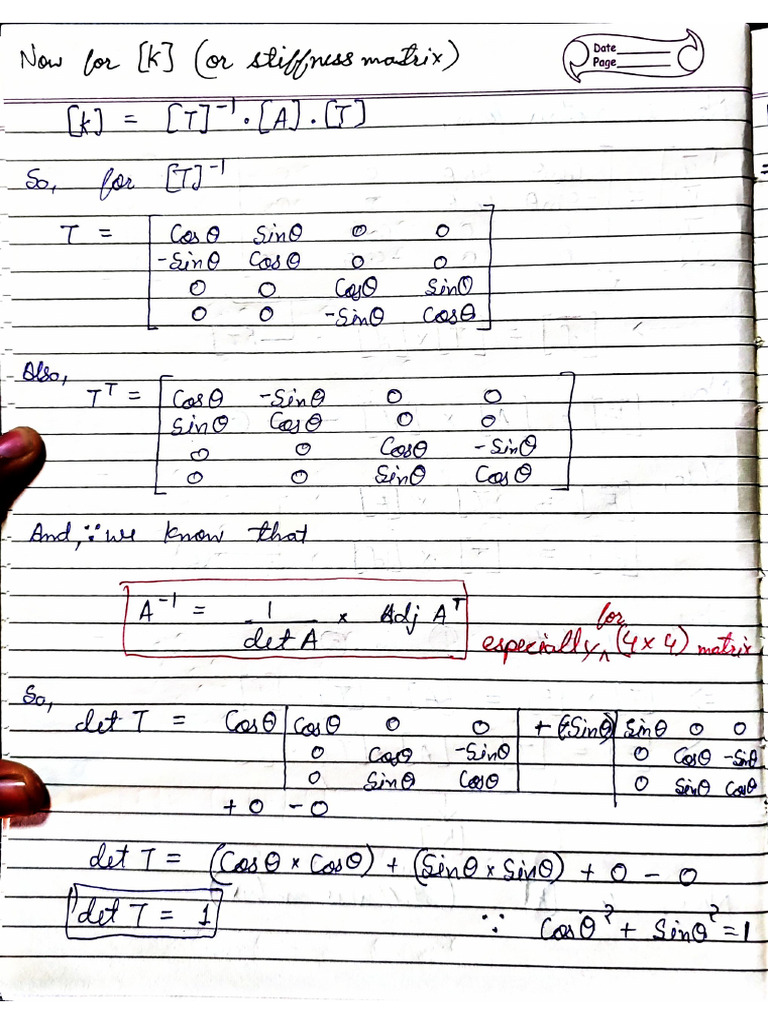 Now for [K] (or stiffness matrix)
Date
Page
[K] = [T]⁻¹ . [A] . [T]
So, for [T]⁻¹
T = [ Cosθ Sinθ 0 0
-Sinθ Cosθ 0 0
0 0 Cosθ Sinθ
0 0 -Sinθ Cosθ ]
Also,
Tᵀ = [ Cosθ -Sinθ 0 0
Sinθ Cosθ 0 0
0 0 Cosθ -Sinθ
0 0 Sinθ Cosθ ]
And, ∵ we know that
A⁻¹ = 1/det A × Adj Aᵀ
especially for (4 × 4) matrix
So,
det T = Cosθ | Cosθ 0 0 | + (-Sinθ) | Sinθ 0 0
0 Cosθ -Sinθ | 0 Cosθ -Sinθ
0 Sinθ Cosθ | 0 Sinθ Cosθ
+ 0 - 0
det T = (Cosθ × Cosθ) + (Sinθ × Sinθ) + 0 - 0
det T = 1 ∵ Cosθ² + Sinθ² = 1